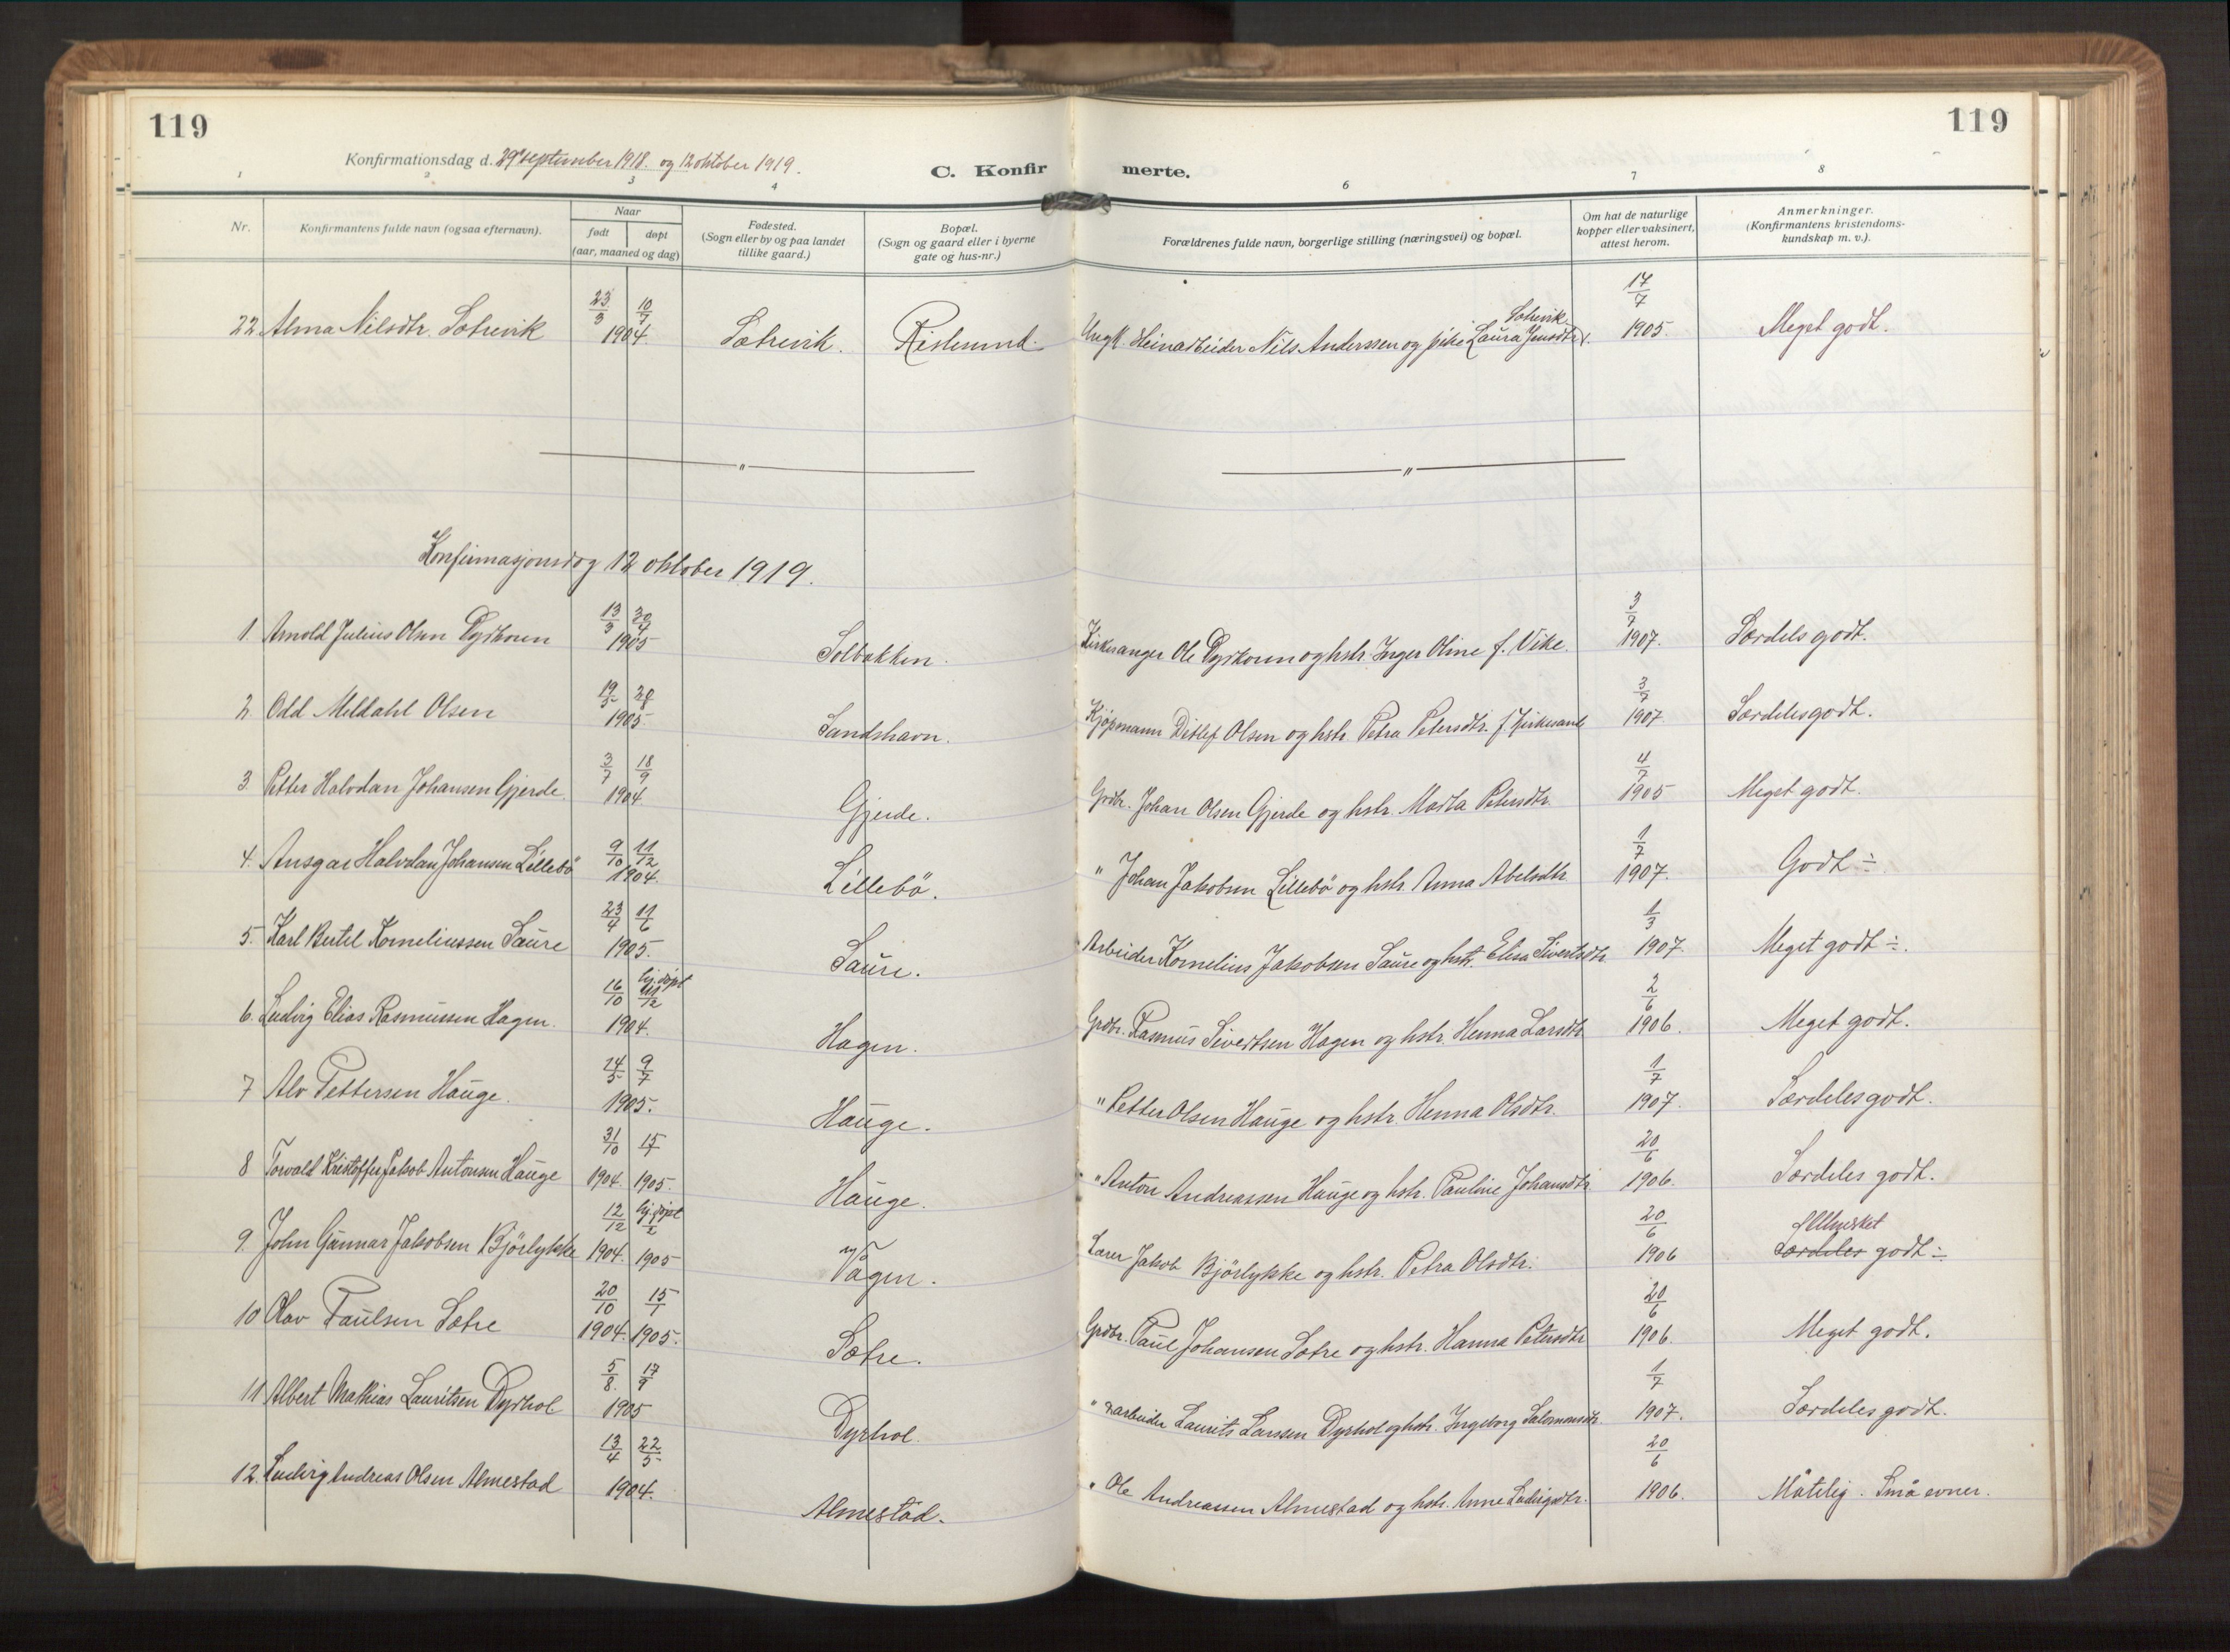 119
119
Konfirmationsdag d. 29 september 1918. og 12 oktober 1919.
C. Konfir merte.
1 2 3 4 6 7 8
Nr.
Konfirmantens fulde navn (ogsaa efternavn).
Naar
født døpt
(aar, maaned og dag)
Fødested.
(Sogn eller by og paa landet
tillike gaard.)
Bopæl.
(Sogn og gaard eller i byerne
gate og hus-nr.)
Forældrenes fulde navn, borgerlige stilling (næringsvei) og bopæl.
Om hat de naturlige
kopper eller vaksinert,
attest herom.
Anmerkninger.
(Konfirmantens kristendoms-
kundskap m. v.).
22. Alma Nilsdtr. Sætrevik 23/3 10/7 1904. Sætrevik. Ungk. Nils Anderssen og pike Laura Jensdtr. Sætrevik. 17/7 1905. Meget godt.
"
"
Konfirmasjonsdag 12 oktober 1919.
1. Arnold Julius Olsen Dyrkorn 13/3 30/4 1905 Solbakken. Kirkesanger Ole Dyrkorn og hstr. Inger Oline f. Vike. 3/7 1907. Særdeles godt.
2. Odd Meldahl Olsen 19/5 1905. Sandshavn. Kjøpmann Ditlef Olsen og hstr. Petra Petersdtr. f. 3/7 1907 Særdeles godt.
3. Petter Halvdan Johansen Gjerde. 3/7 18/9 1904. Gjerde. Grdbr. Johan Olsen Gjerde og hstr. Marta Petersdtr. 4/7 1905 Meget godt.
4. Ansgar Halvdan Johansen Lillebö 9/10 11/12 1904. Lillebö. " Johan Jakobsen Lillebö og hstr. Anna Abelsdtr. 1/7 1907. Godt ÷
5. Karl Bertel Korneliussen Saure 23/4 11/6 1905. Saure. Arbeider Kornelius Jakobsen Saure og hstr. Elisa Sivertsdtr. 1/3 1907. Meget godt ÷.
6. Ludvig Elias Rasmussen Hagen. 16/10 hj. döpt 1904. Hagen. Grdbr. Rasmus Sivertsen Hagen og hstr. Henna Larsdtr. 2/6 1906. Meget godt.
7 Alv Pettersen Hauge. 14/5 9/7 1905. Hauge. " Petter Olsen Hauge og hstr. Henna Olsdtr. 1/7 1907. Særdeles godt.
8 Torvald Kristoffer Jakob Antonsen Hauge 31/10 1904. 1905. Hauge. " Anton Andreassen Hauge og hstr. Pauline Johansdtr. 20/6 1906. Særdeles godt.
9. John Gunnar Jakobsen Bjørlykke 12/12 1904. hj. döpt 1905 Vågen. Lærer Jakob Bjørlykke og hstr. Petra Olsdtr. 20/6 1906 Utmerket Særdeles godt ÷
10 Olav Paulsen Sætre 20/10 1904. 15/1 1905. Sætre. Grdbr. Paul Johansen Sætre og hstr. Hanna Petersdtr. 20/6 1906. Meget godt.
11 Albert Mathias Lauritsen Dyrhol 5/8. 17/9 1905 Dyrhol. " arbeider Laurits Larssen Dyrhol og hstr. Ingeborg Salomonsdtr. 1/7 1907. Særdeles godt.
12. Ludvig Andreas Olsen Almestad 13/4 22/5 1904. Almestad. " Ole Andreassen Almestad og hstr. Anne Ludvigsdtr. 20/6 1906. Måtelig. Små evner.